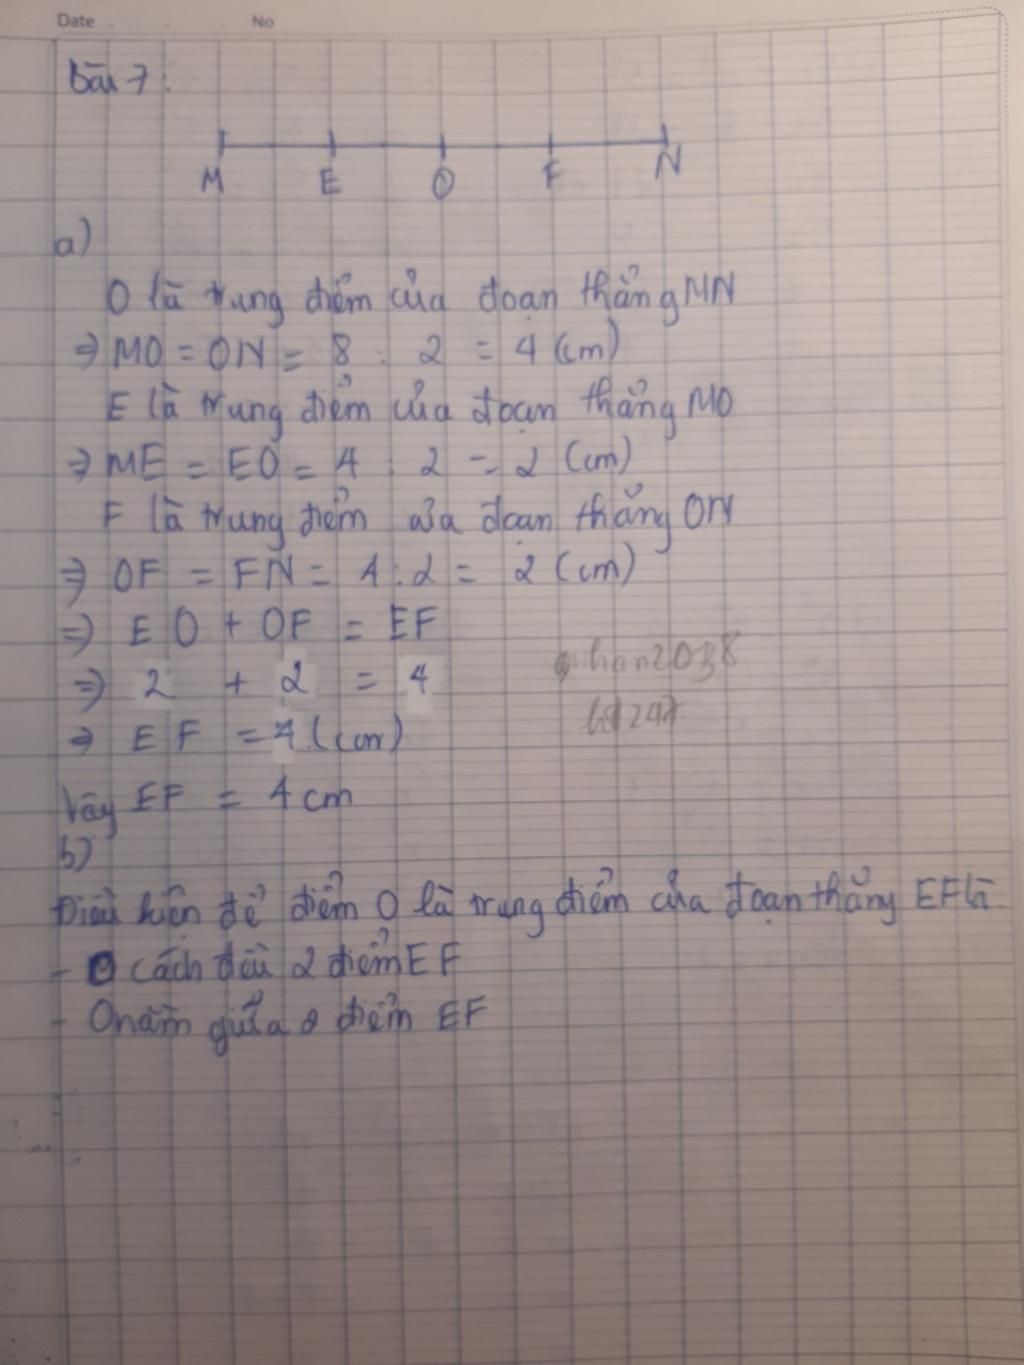 Date No
Bài 7:
M E O F N
a)
O là trung điểm của đoạn thẳng MN
⇒ MO = ON = 8 : 2 = 4 (cm)
E là trung điểm của đoạn thẳng MO
⇒ ME = EO = 4 : 2 = 2 (cm)
F là trung điểm của đoạn thẳng ON
⇒ OF = FN = 4 : 2 = 2 (cm)
⇒ EO + OF = EF
⇒ 2 + 2 = 4
⇒ EF = 4 (cm)
Vậy EF = 4 cm
b)
Điều kiện để điểm O là trung điểm của đoạn thẳng EF là
- O cách đều 2 điểm EF
- O nằm giữa 2 điểm EF